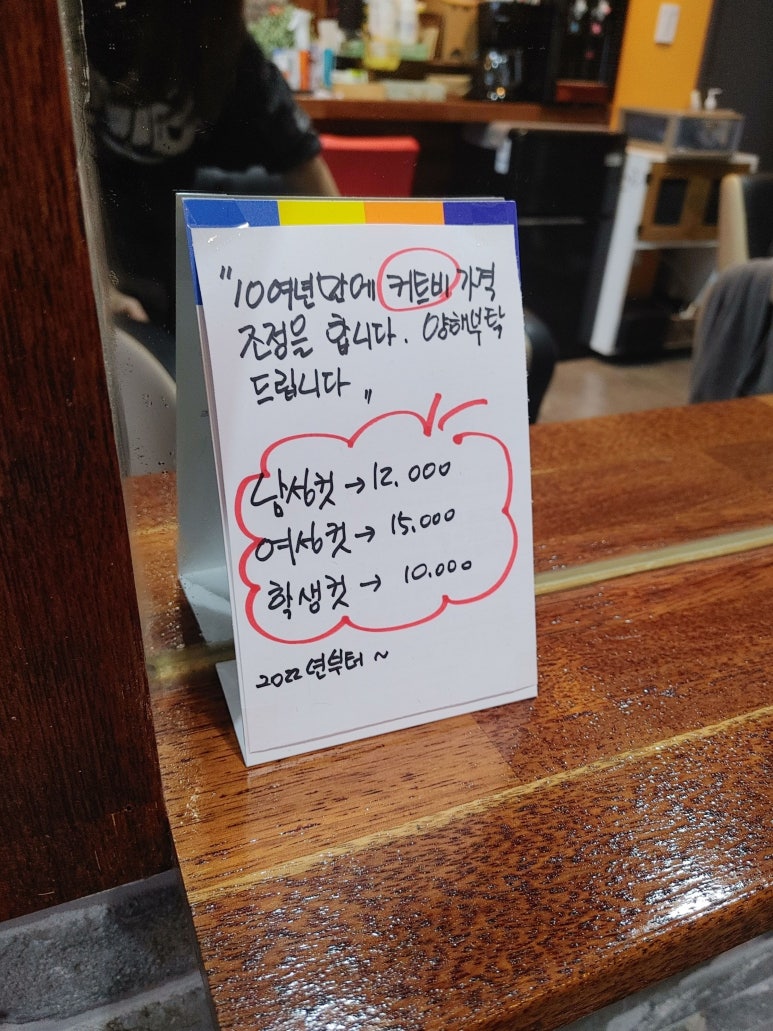 "10여년만에 커트비 가격
조정을 합니다. 양해부탁
드립니다"
남성컷 → 12.000
여성컷 → 15.000
학생컷 → 10.000
2022년부터 ~